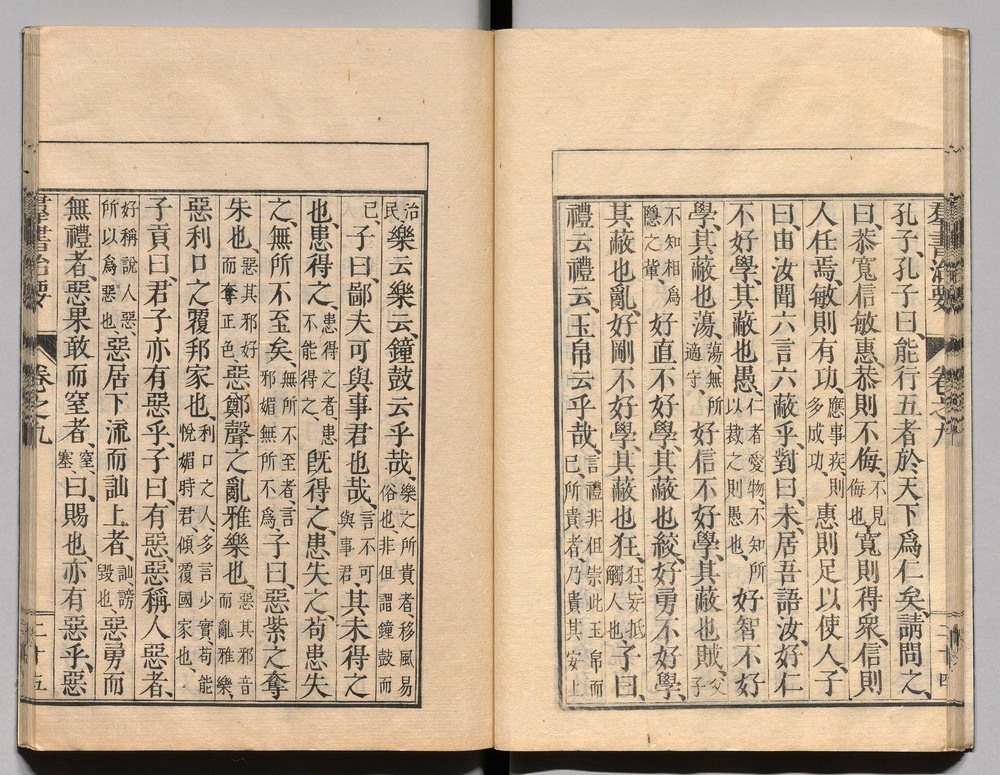 孔子、孔子曰、能行五者於天下爲仁矣、請問之、
曰、恭寬信敏惠、恭則不侮、不見侮也、寬則得衆、信則
人任焉、敏則有功、應事疾、則多成功、惠則足以使人、子
曰、由汝聞六言六蔽乎、對曰、未、居吾語汝、好仁
不好學、其蔽也愚、仁者愛物、不知所以裁之則愚也、好智不好
學、其蔽也蕩、蕩、無所適守、好信不好學、其蔽也賊、父子
不知相爲隱之輩、好直不好學、其蔽也絞、好勇不好學、
其蔽也亂、好剛不好學、其蔽也狂、狂、妄抵觸人也、子曰、
禮云禮云、玉帛云乎哉、言禮非但崇此玉帛而已、所貴者、乃貴其安上
群書治要 卷之九 二十四
治民、樂云樂云、鐘鼓云乎哉、樂之所貴者移風易俗也、非但謂鐘鼓而
已、子曰、鄙夫可與事君也哉、言不可與事君、其未得之
也、患得之、患得之者、患不能得之、既得之、患失之、苟患失
之、無所不至矣、無所不至者、言邪媚無所不爲、子曰、惡紫之奪
朱也、惡其邪好而奪正色、惡鄭聲之亂雅樂也、惡其邪音而亂雅樂、
惡利口之覆邦家也、利口之人、多言少實、苟能悅媚時君、傾覆國家也、
子貢曰、君子亦有惡乎、子曰、有惡、惡稱人惡者、
好稱說人惡、所以爲惡也、惡居下流而訕上者、訕、謗毀也、惡勇而
無禮者、惡果敢而窒者、窒、塞、曰、賜也、亦有惡乎、惡
群書治要 卷之九 二十五